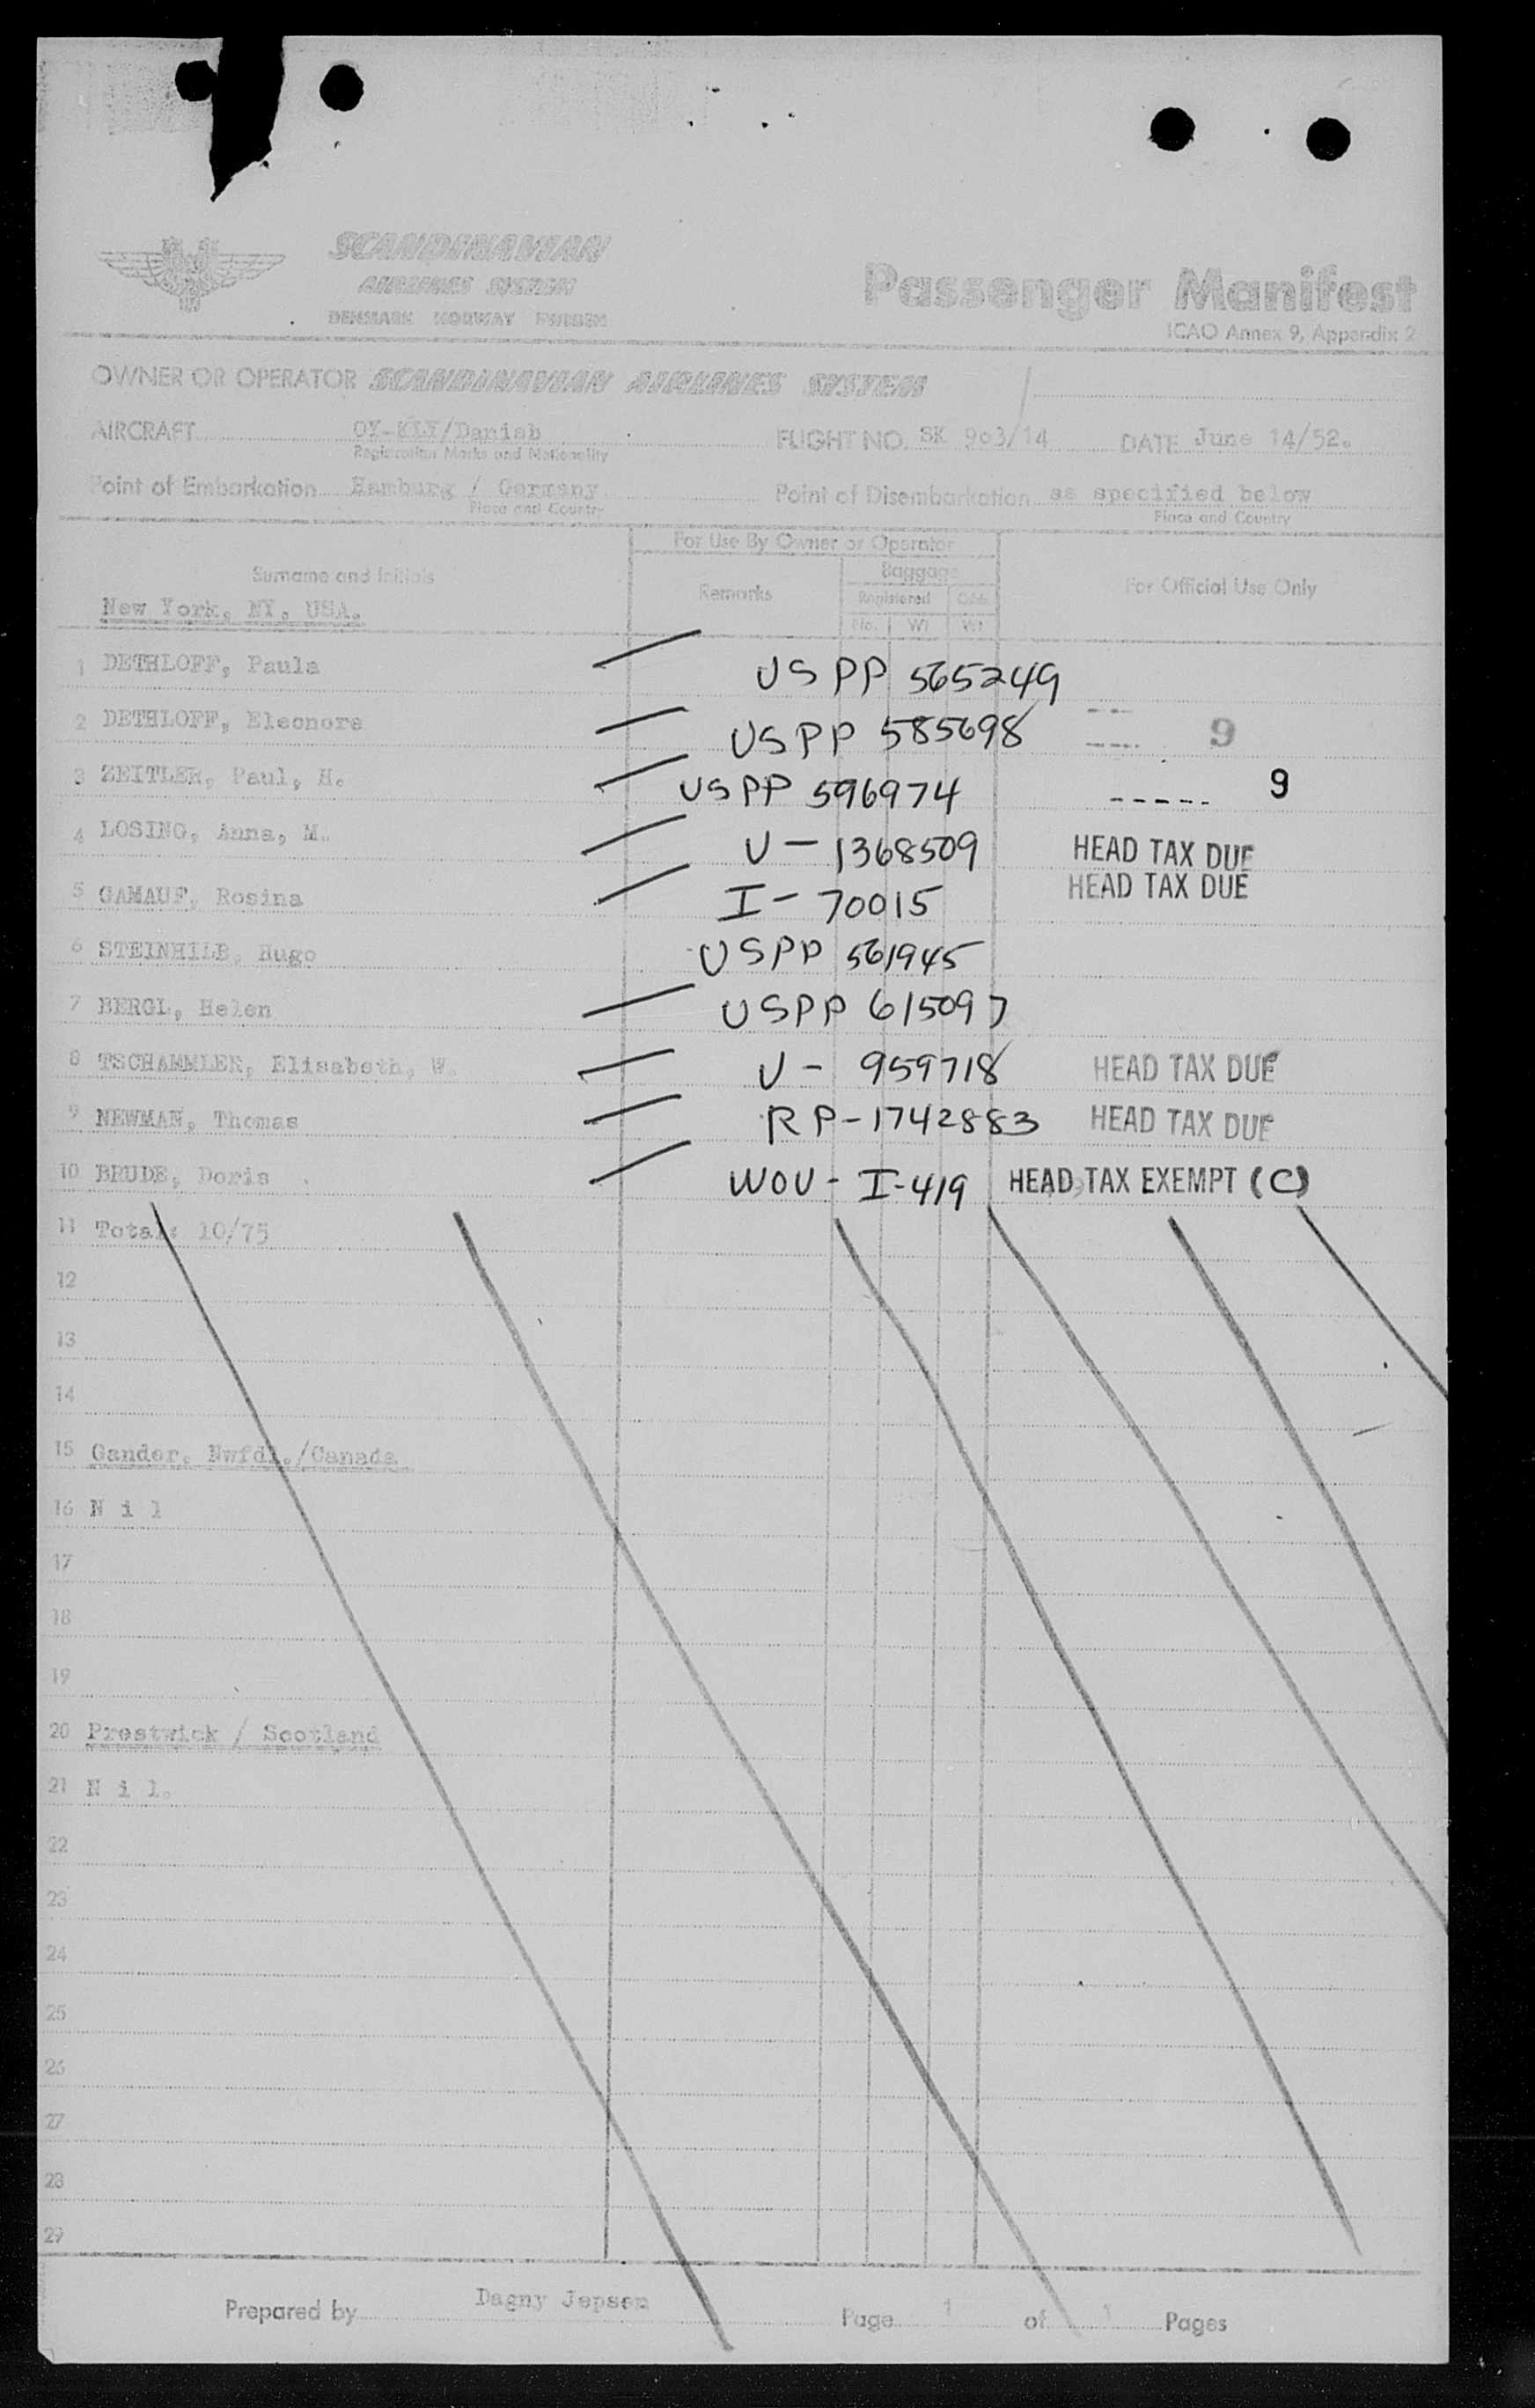 SCANDINAVIAN
AIRLINES SYSTEM
DENMARK NORWAY SWEDEN
Passenger Manifest
ICAO Annex 9, Appendix 2
OWNER OR OPERATOR SCANDINAVIAN AIRLINES SYSTEM
AIRCRAFT OY-KLY/Danish FLIGHT NO. SK 903/14 DATE June 14/52.
Registration Marks and Nationality
Point of Embarkation Hamburg / Germany Point of Disembarkation as specified below
Place and Country Place and Country
For Use By Owner or Operator
Surname and Initials Remarks Baggage For Official Use Only
Registered
New York, NY, USA. No. Wt Wt
1 DETHLOFF, Paula USPP 565249
2 DETHLOFF, Eleonore USPP 585698 9
3 ZEITLER, Paul, H. USPP 596974 ----- 9
4 LOSING, Anna, M. V - 1368509 HEAD TAX DUE
5 GAMAUF, Rosina I - 70015 HEAD TAX DUE
6 STEINHILB, Hugo USPP 561945
7 BERGL, Helen USPP 615097
8 TSCHAMMLER, Elisabeth, W. V - 959718 HEAD TAX DUE
9 NEWMAN, Thomas RP-1742883 HEAD TAX DUE
10 BRUDE, Doris WOV- I-419 HEAD TAX EXEMPT (C)
11 Total: 10/75
12
13
14
15 Gander, Nwfdl./Canada
16 N i l
17
18
19
20 Prestwick / Scotland
21 N i l.
22
23
24
25
26
27
28
29
Prepared by Dagny Jepsen Page 1 of 1 Pages